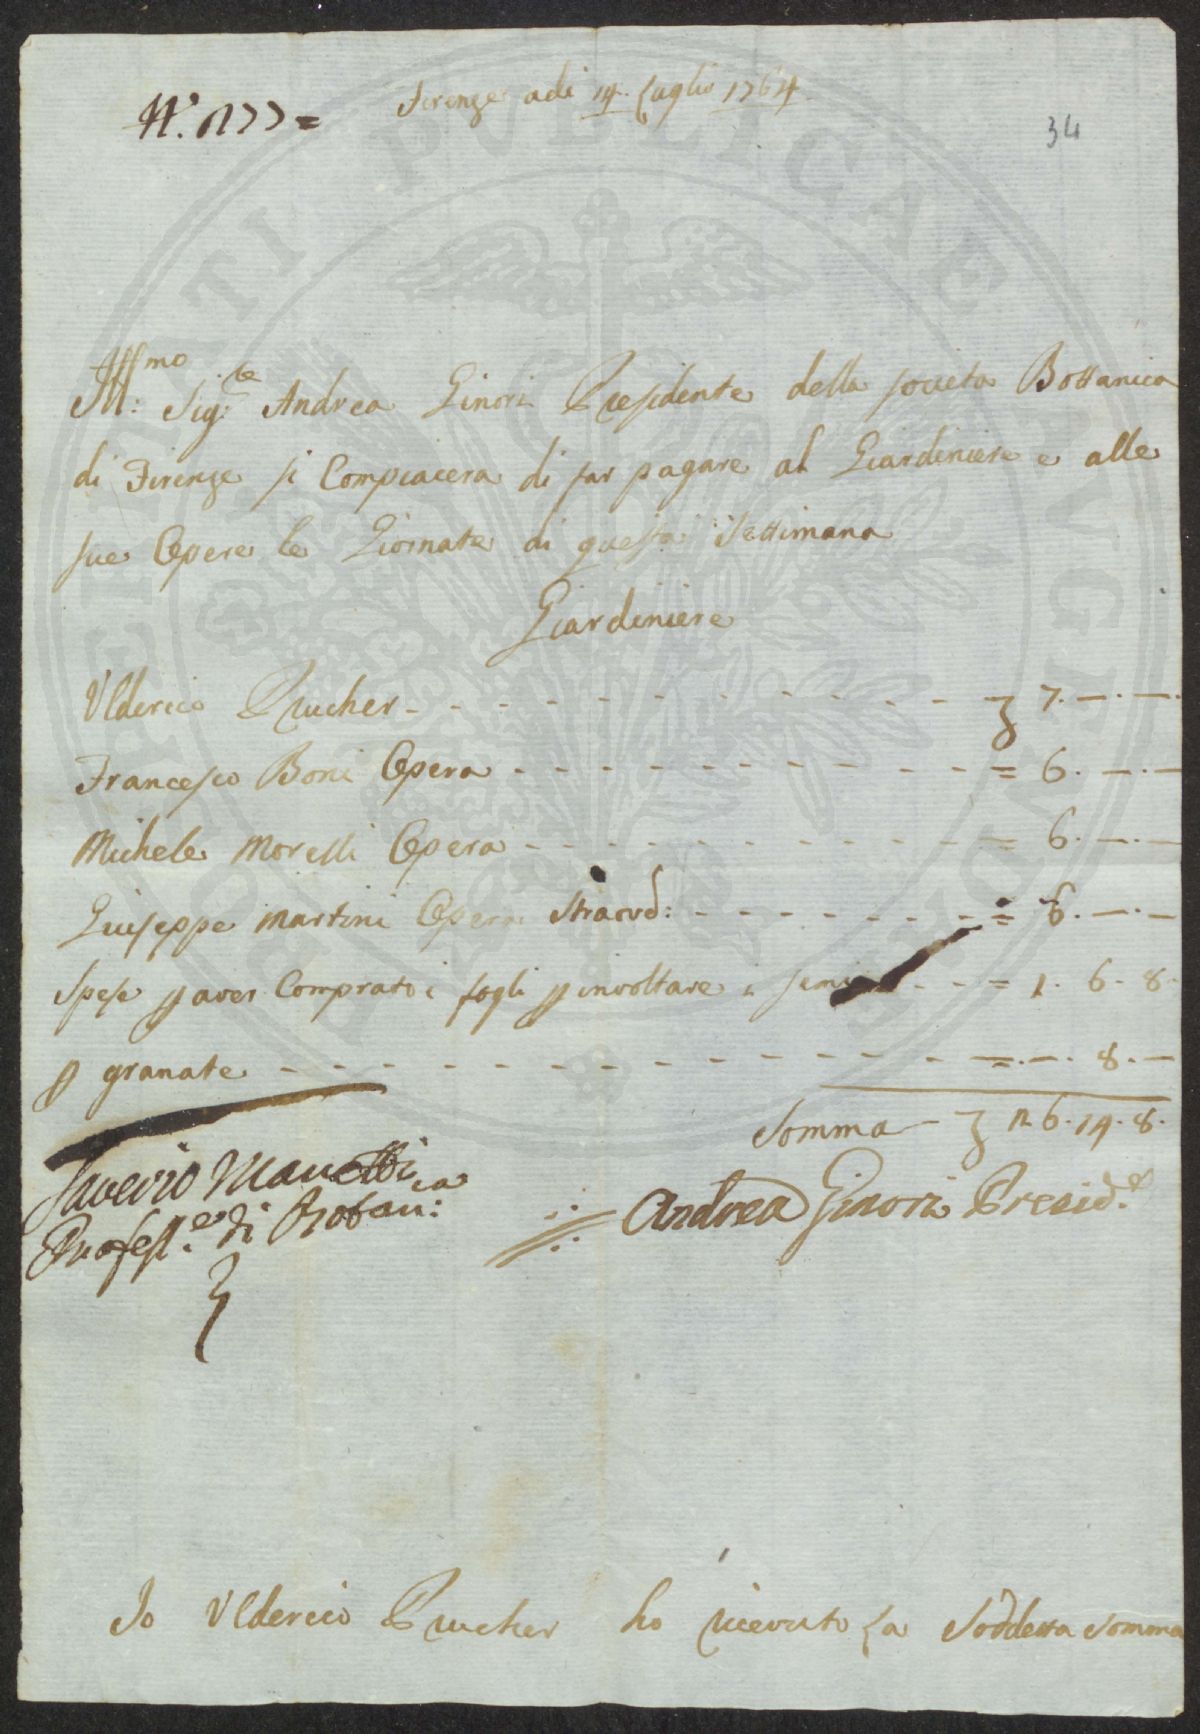 N.° 177 =
Firenze adi 14. Luglio 1764
34
Ill:mo Sig:re Andrea Ginori Presidente della società Bottanica
di Firenze si Compiacera di far pagare al Giardiniere e alle
sue Opere le Giornate di questa Settimana
Giardiniere
Ulderico Prucher - - - - - - - - - - - 7. —. —.
Francesco Boni Opera - - - - - - - - - - = 6. —. —
Michele Morelli Opera - - - - - - - - - - = 6. —. —
Giuseppe Martini Opera Straord: - - - - - - = 6. —. —
Spese p aver Comprato i fogli p involtare i semi - - = 1. 6. 8.
p granate - - - - - - - - - - - =. —. 8. —
Somma — 26. 14. 8.
Saverio Manetti
Profess.e di Botan:ca
Andrea Ginori Presid.e
Io Ulderico Prucher ho ricevuto La Sodd.etta Somma
PUBLICAE